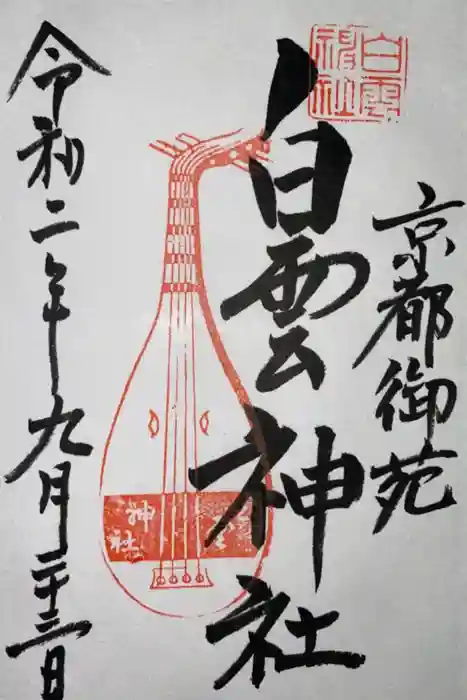 京都御苑
白雲神社
白雲
神社
白雲
神社
令和二年九月二十三日